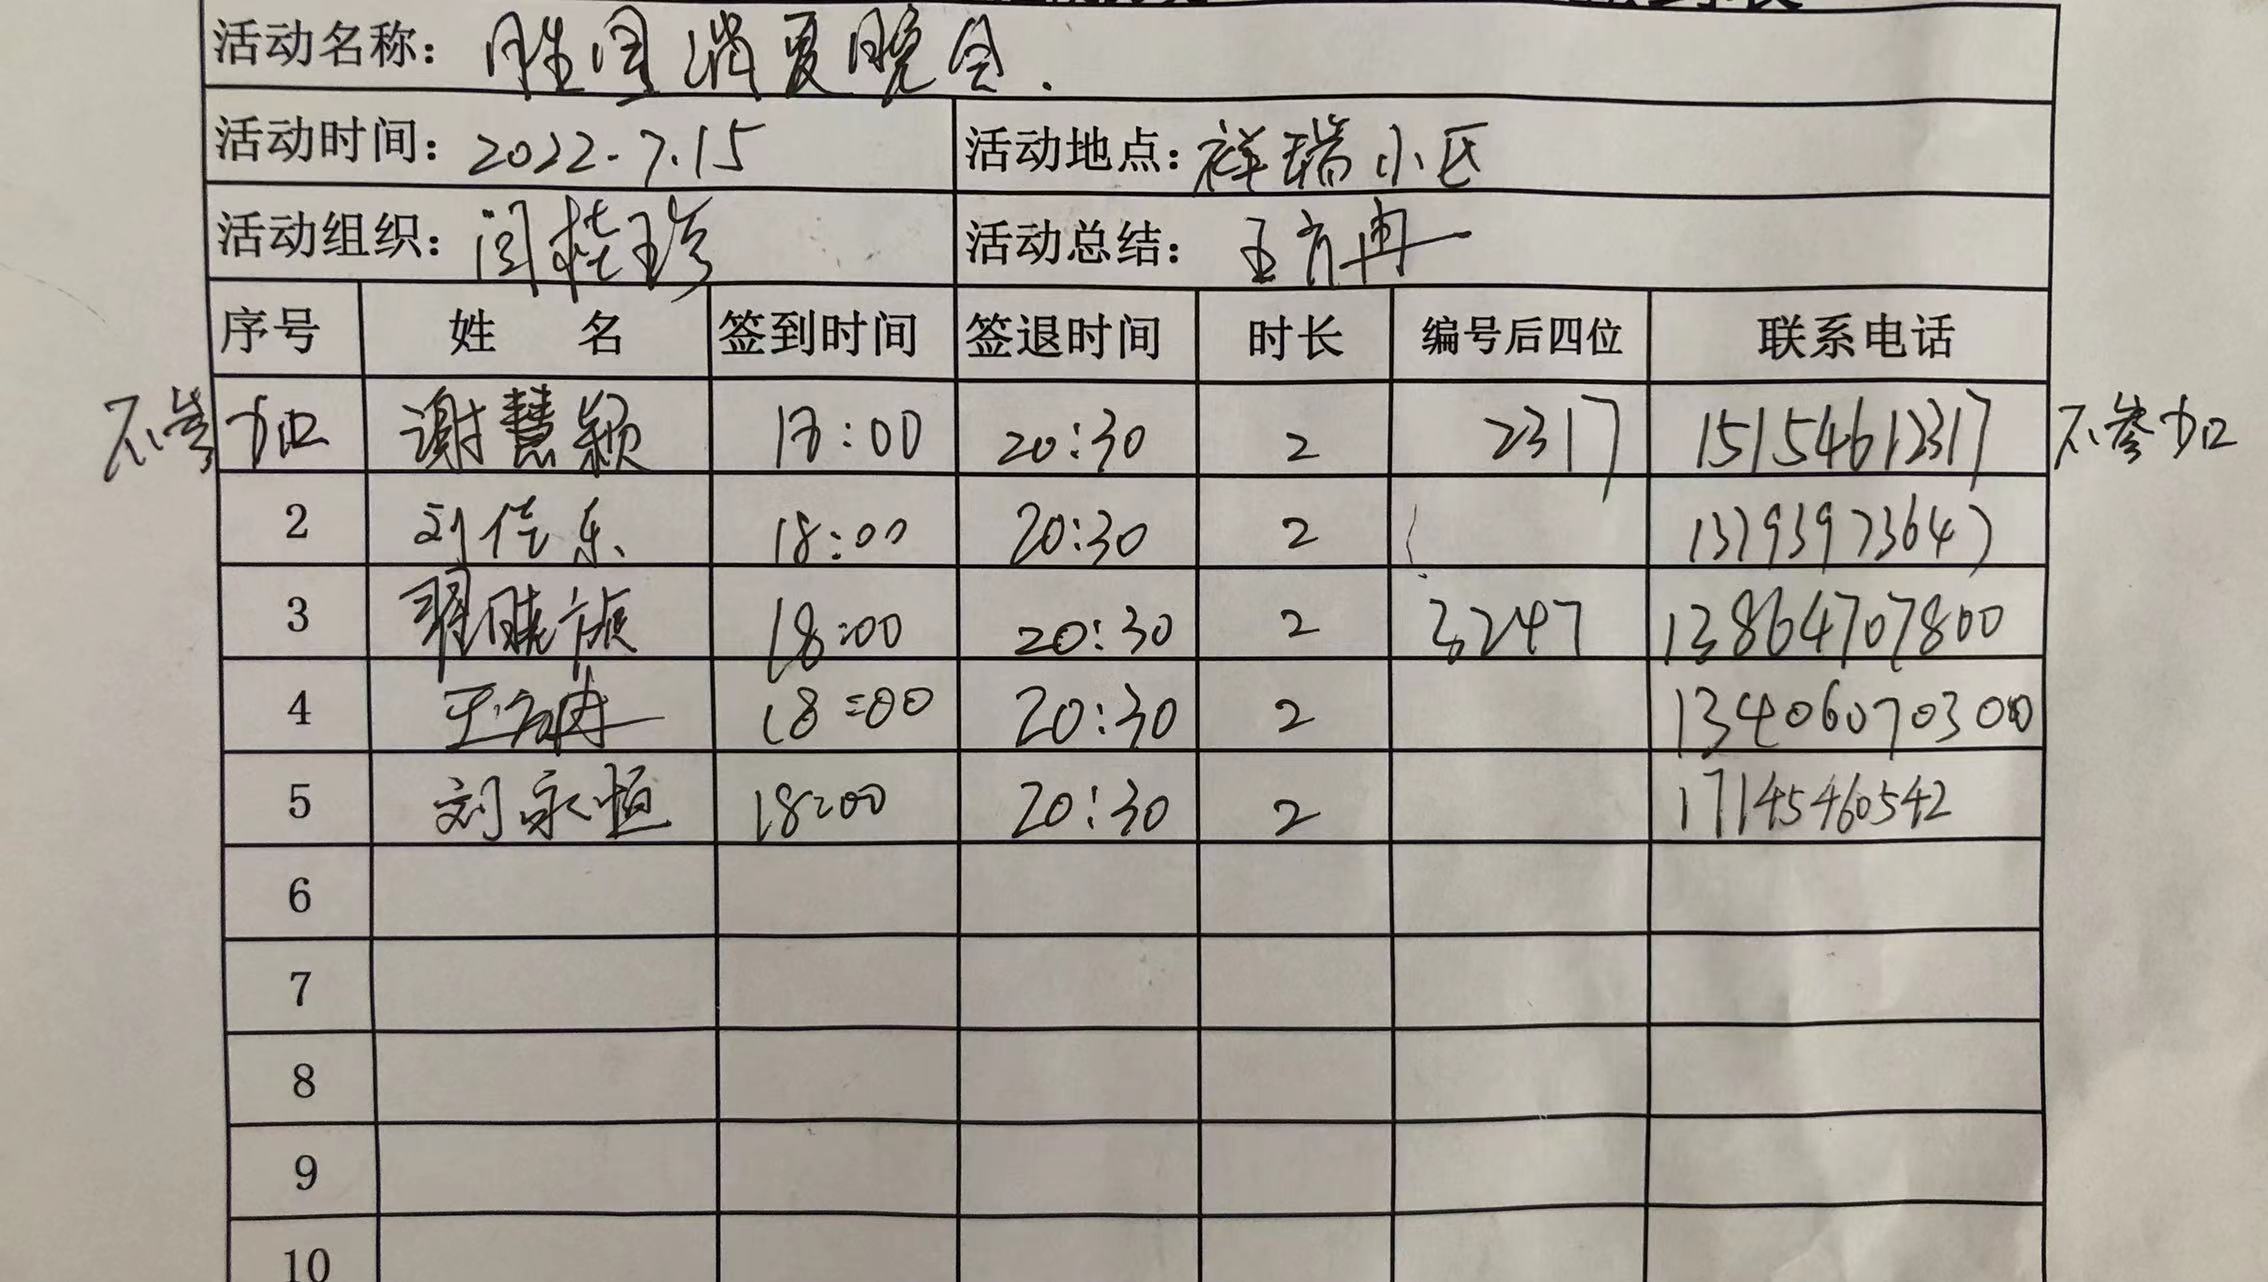 活动名称：胜园消夏晚会.
活动时间：2022.7.15 活动地点：祥瑞小区
活动组织：闫桂珍 活动总结：王方冉
序号 姓 名 签到时间 签退时间 时长 编号后四位 联系电话
不参加 谢慧颖 18:00 20:30 2 2317 15154612317 不参加
2 刘佳东 18:00 20:30 2 13793973647
3 翟晓旋 18:00 20:30 2 3247 13864707800
4 王方冉 18:00 20:30 2 13406070300
5 刘永恒 18:00 20:30 2 17145460542
6
7
8
9
10